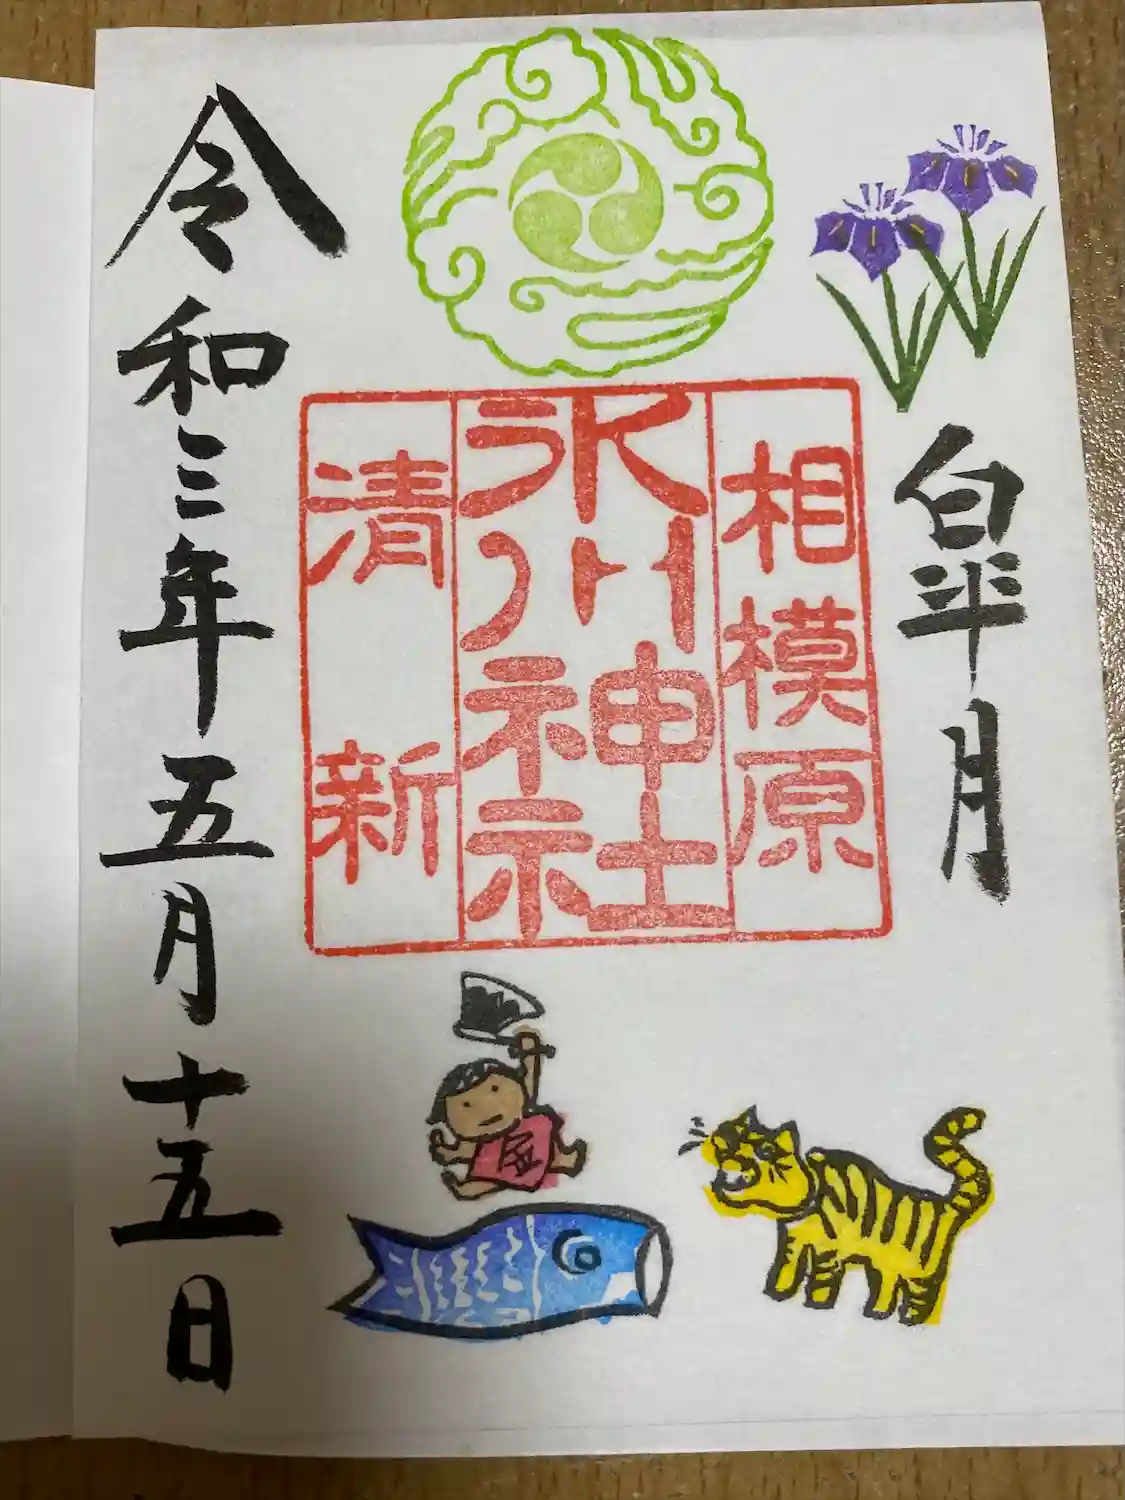 皐月
相模原
氷川神社
清新
令和三年五月十五日
金